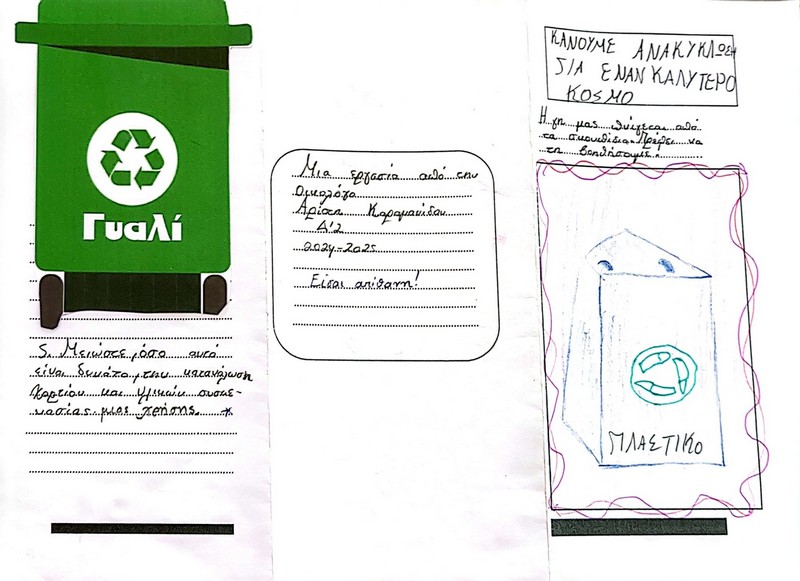 Γυαλί
5. Μειώστε, όσο αυτό
είναι δυνατό, την κατανάλωση
χαρτιού και υλικών συσκε-
υασίας μιας χρήσης. *
Μια εργασία από την
Οικολόγο
Αρίστη Καραμανίδου
Δ'2
2024-2025
Είσαι απίθανη!
ΚΑΝΟΥΜΕ ΑΝΑΚΥΚΛΩΣΗ
ΓΙΑ ΕΝΑΝ ΚΑΛΥΤΕΡΟ
ΚΟSΜΟ
Η γη μας πνίγεται από
τα σκουπίδια. Πρέπει να
τη βοηθήσουμε.
ΠΛΑΣΤΙΚΟ